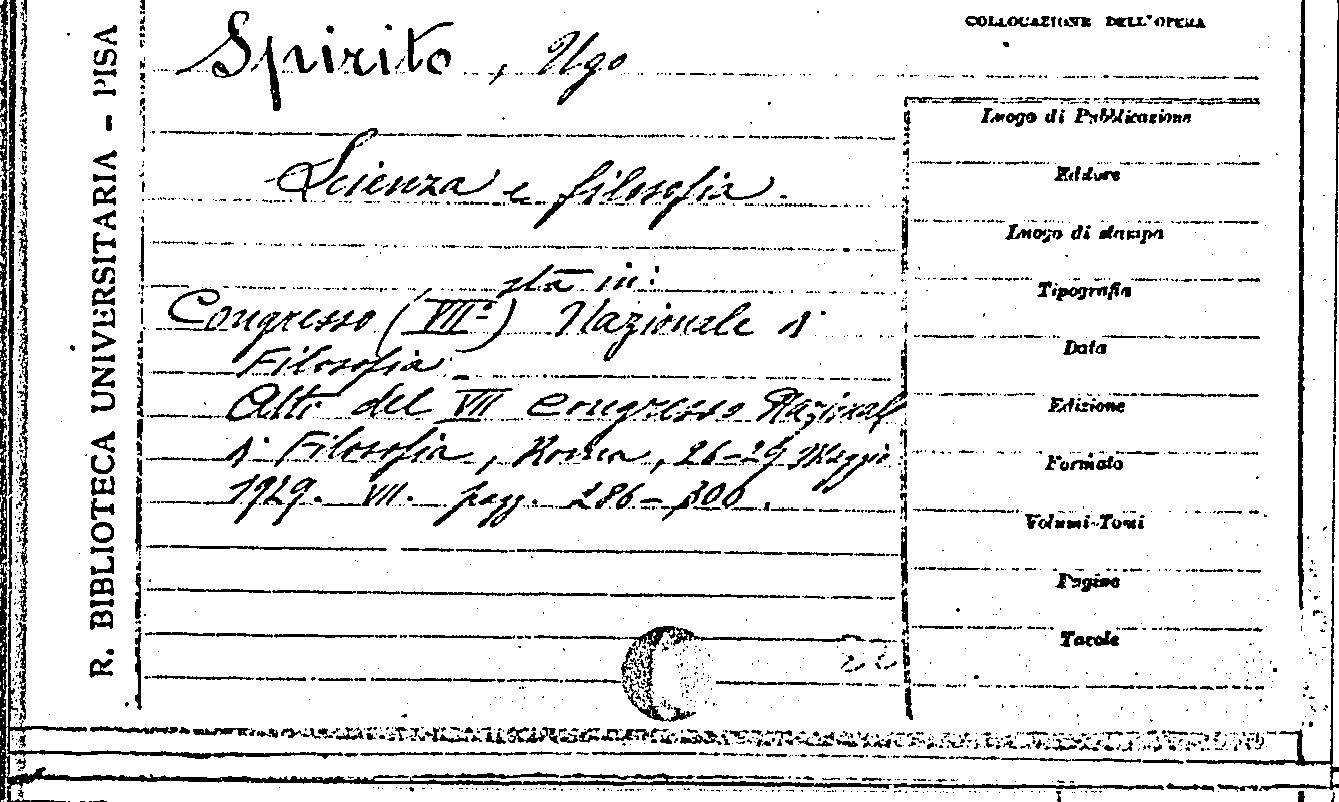 R. BIBLIOTECA UNIVERSITARIA - PISA
Spirito, Ugo
Scienza e filosofia.
sta in:
Congresso (VII°) Nazionale di
Filosofia -
Atti del VII Congresso Nazionale
di Filosofia, Roma, 26-29 Maggio
1929. VII. pagg. 286-300.
COLLOCAZIONE DELL'OPERA
Luogo di Pubblicazione
Editore
Luogo di stampa
Tipografia
Data
Edizione
Formato
Volumi-Tomi
Pagine
Tavole